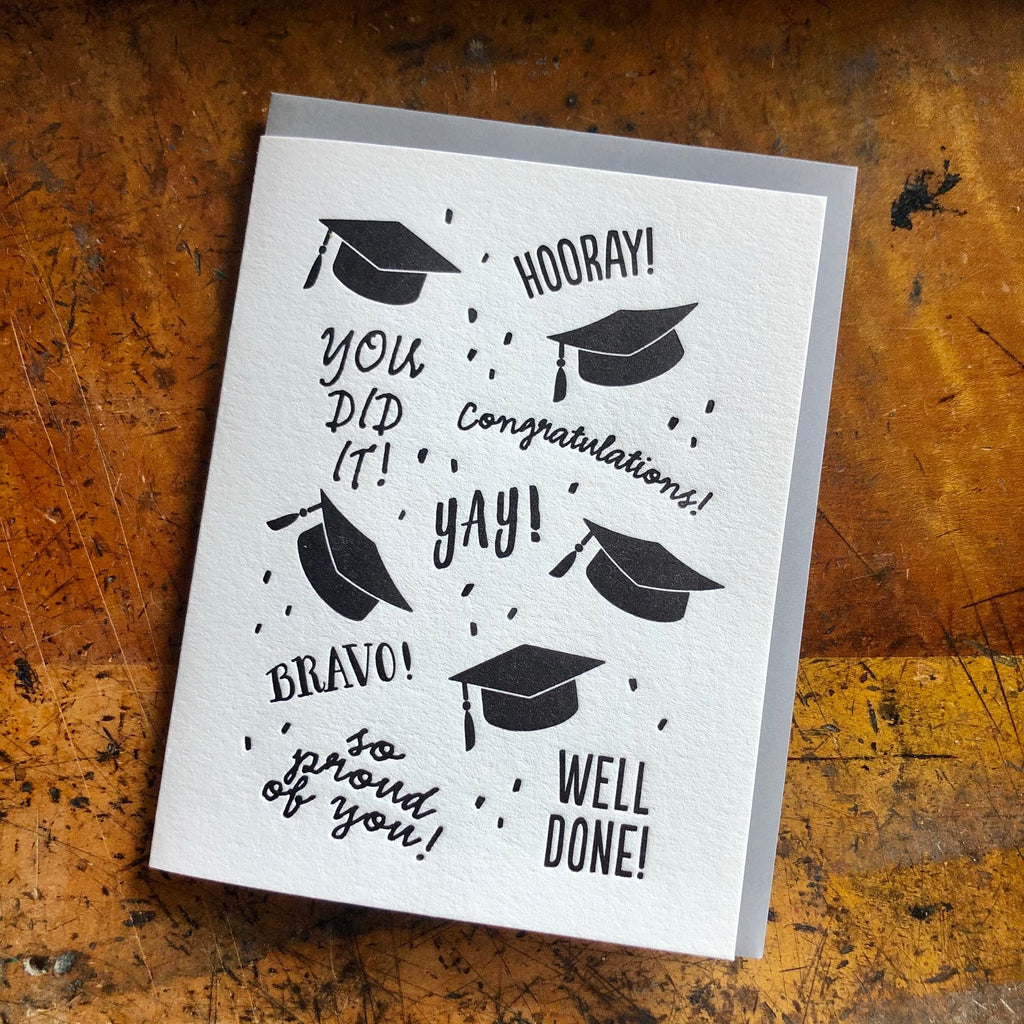 HOORAY!
YOU
DID
IT!
Congratulations!
YAY!
BRAVO!
so
proud
of you!
WELL
DONE!